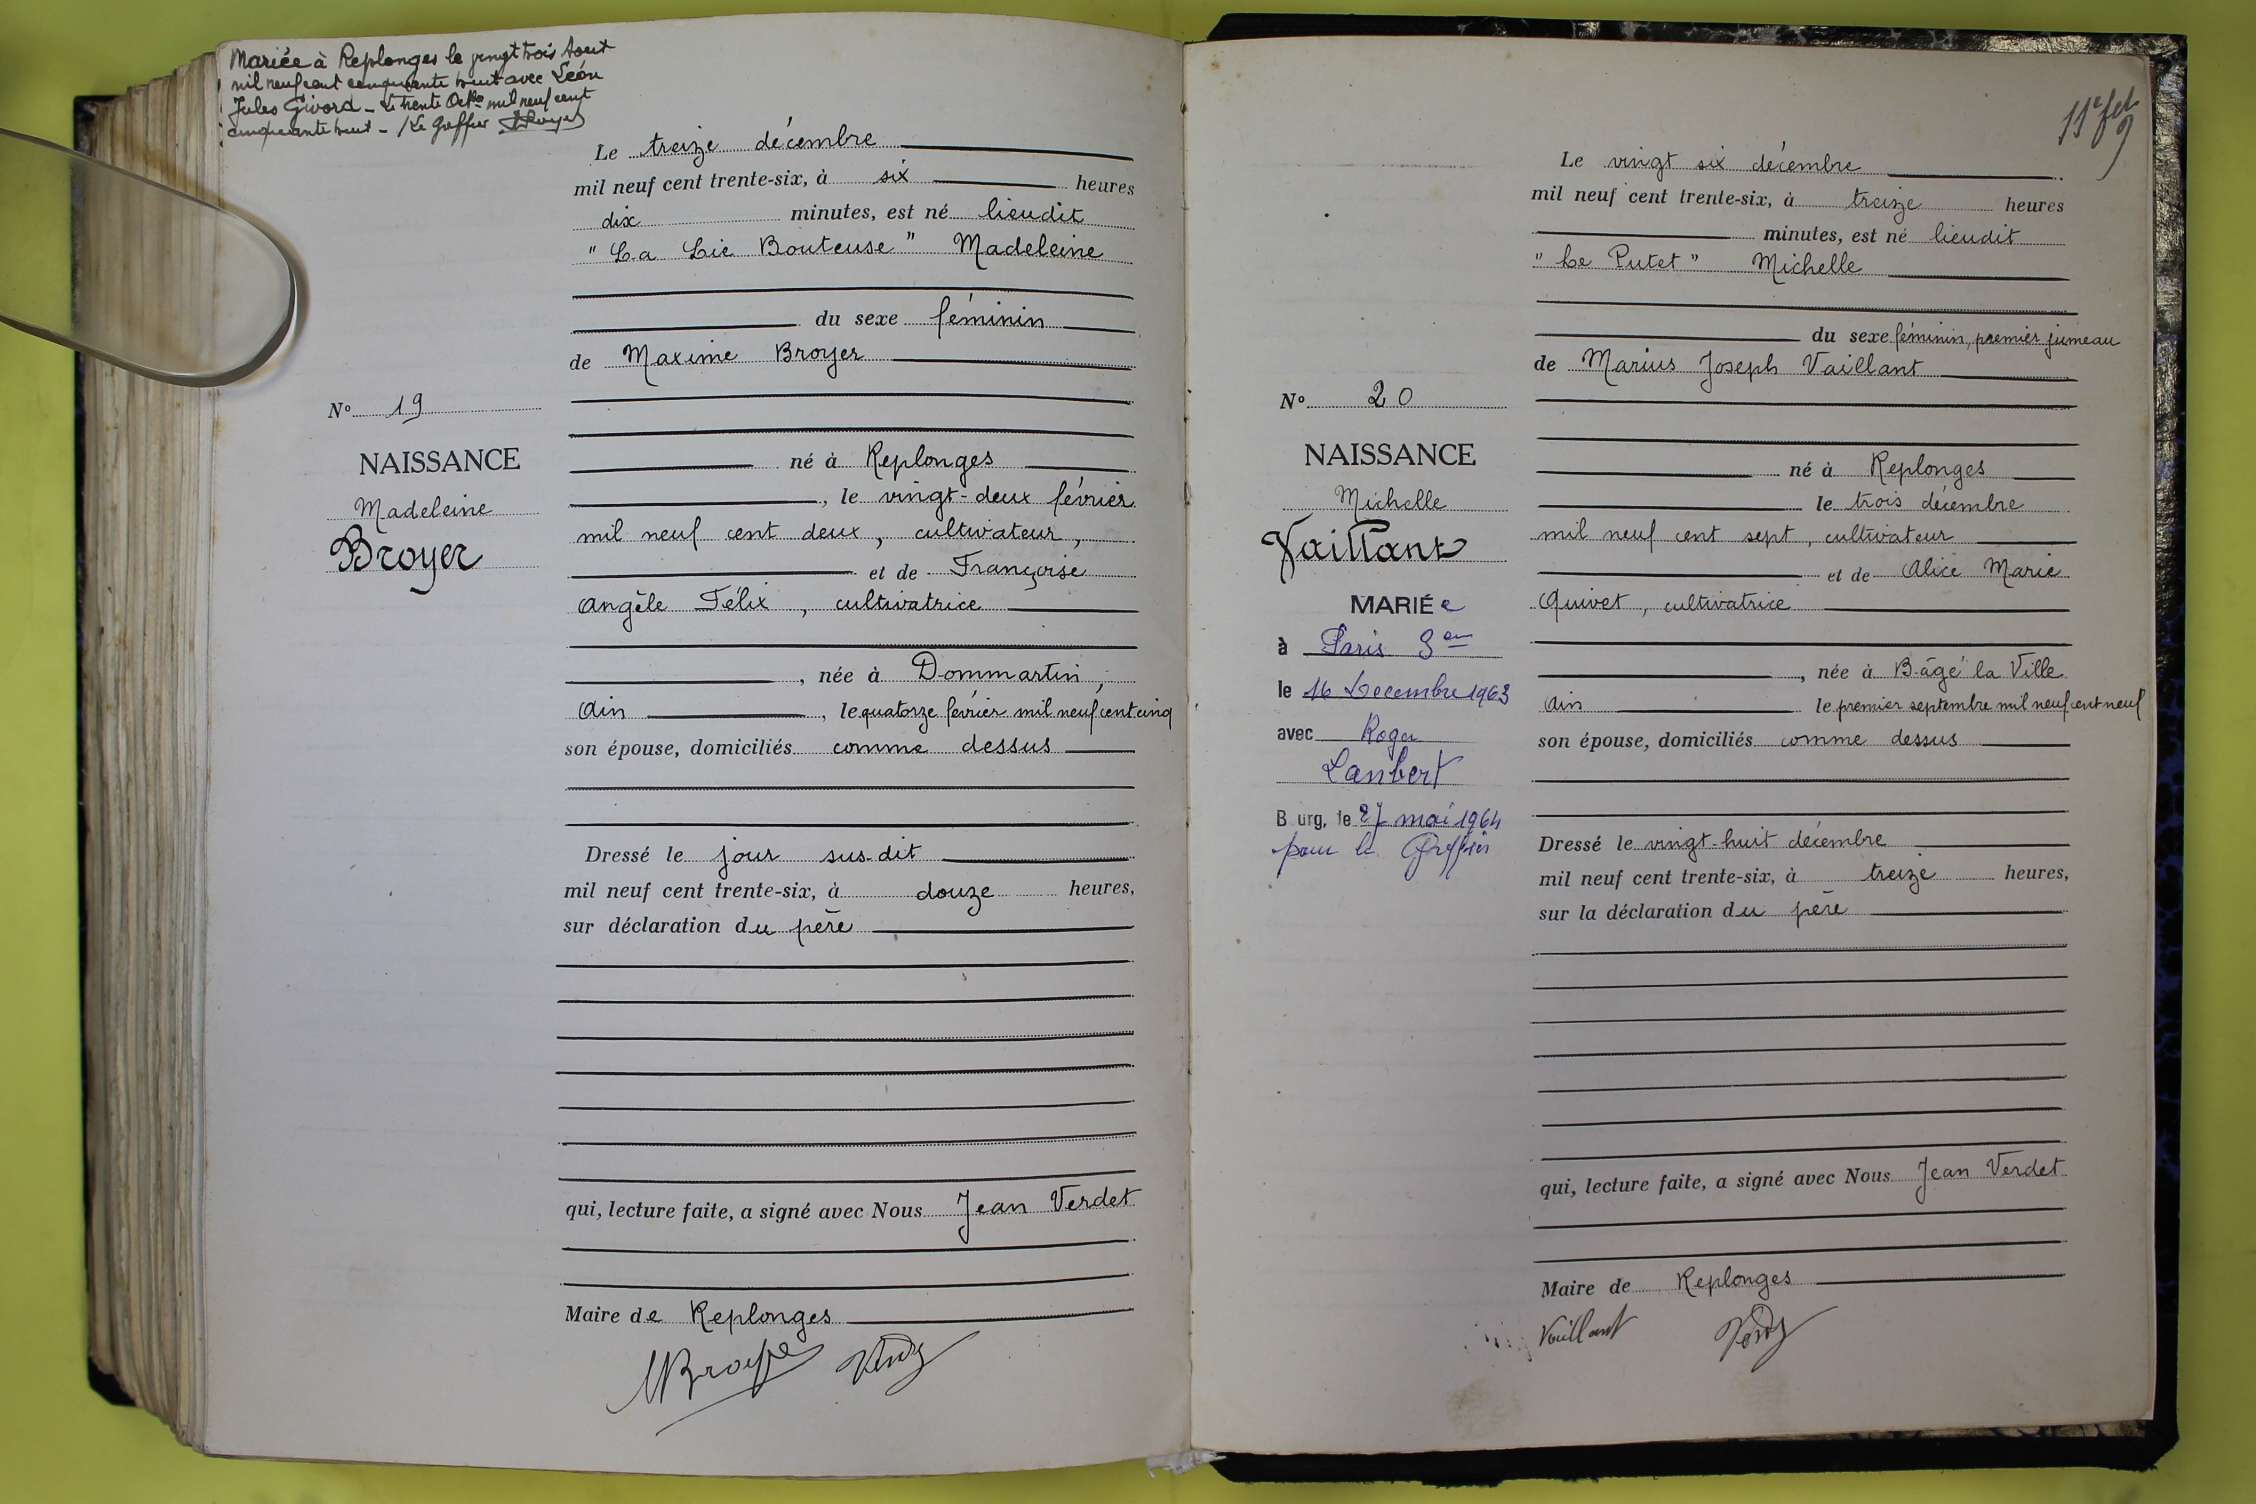 Mariée à Replonges le vingt trois Aout
mil neuf cent cinquante huit avec Léon
Jules Givord - Le trente Octbre mil neuf cent
cinquante huit - Le Greffier
Le treize décembre
mil neuf cent trente-six, à six heures
dix minutes, est né lieudit
" La Lie Bouteuse " Madeleine
du sexe féminin
de Maxime Broyer
N° 19
NAISSANCE
Madeleine
Broyer
né à Replonges
, le vingt-deux février
mil neuf cent deux, cultivateur,
et de Françoise
Angèle Félix, cultivatrice
, née à Dommartin,
Ain , le quatorze février mil neuf cent cinq
son épouse, domiciliés comme dessus
Dressé le jour sus-dit
mil neuf cent trente-six, à douze heures,
sur déclaration du père
qui, lecture faite, a signé avec Nous Jean Verdet
Maire de Replonges
MBroyer
11e fet
Le vingt six décembre
mil neuf cent trente-six, à treize heures
minutes, est né lieudit
" Le Putet " Michelle
du sexe féminin, premier jumeau
de Marius Joseph Vaillant
N° 20
NAISSANCE
Michelle
Vaillant
MARIÉe
à Paris
le 16 Decembre 1963
avec Roger
Lambert
Bourg, le 27 mai 1964
pour le Greffier
né à Replonges
le trois décembre
mil neuf cent sept, cultivateur
et de Alice Marie
Quivet, cultivatrice
, née à Bâgé la Ville
Ain le premier septembre mil neuf cent neuf
son épouse, domiciliés comme dessus
Dressé le vingt-huit décembre
mil neuf cent trente-six, à treize heures,
sur la déclaration du père
qui, lecture faite, a signé avec Nous Jean Verdet
Maire de Replonges
Vaillant